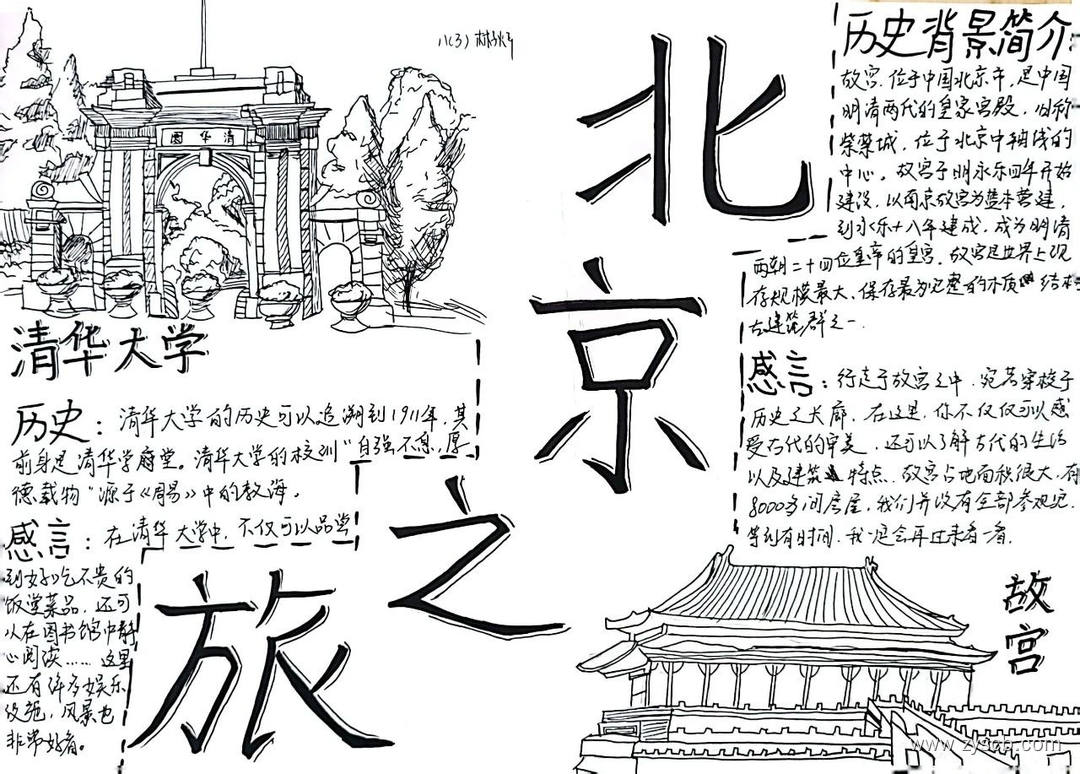 八(3)
清华园
北京之旅
清华大学
历史：清华大学的历史可以追溯到1911年，其
前身是清华学堂。清华大学的校训"自强不息，厚
德载物"源于《周易》中的教海。
感言：在清华大学中，不仅可以品尝
到好吃不贵的
饭堂菜品，还可
以在图书馆中静
心阅读……这里
还有许多娱乐
设施，风景也
非常好看。
历史背景简介：
故宫，位于中国北京市，是中国
明清两代的皇家宫殿，旧称
紫禁城，位于北京中轴线的
中心。故宫于明永乐四年开始
建设，以南京故宫为蓝本营建，
到永乐十八年建成，成为明清
两朝二十四位皇帝的皇宫。故宫是世界上现
存规模最大、保存最为完整的木质结构
古建筑群之一.
感言：行走于故宫之中，宛若穿梭于
历史之长廊，在这里，你不仅仅可以感
受古代的审美，还可以了解古代的生活
以及建筑特点，故宫占地面积很大，有
8000多间房屋，我们并没有全部参观完，
等到有时间，我一定会再过来看一看.
故宫
www.zyscb.com